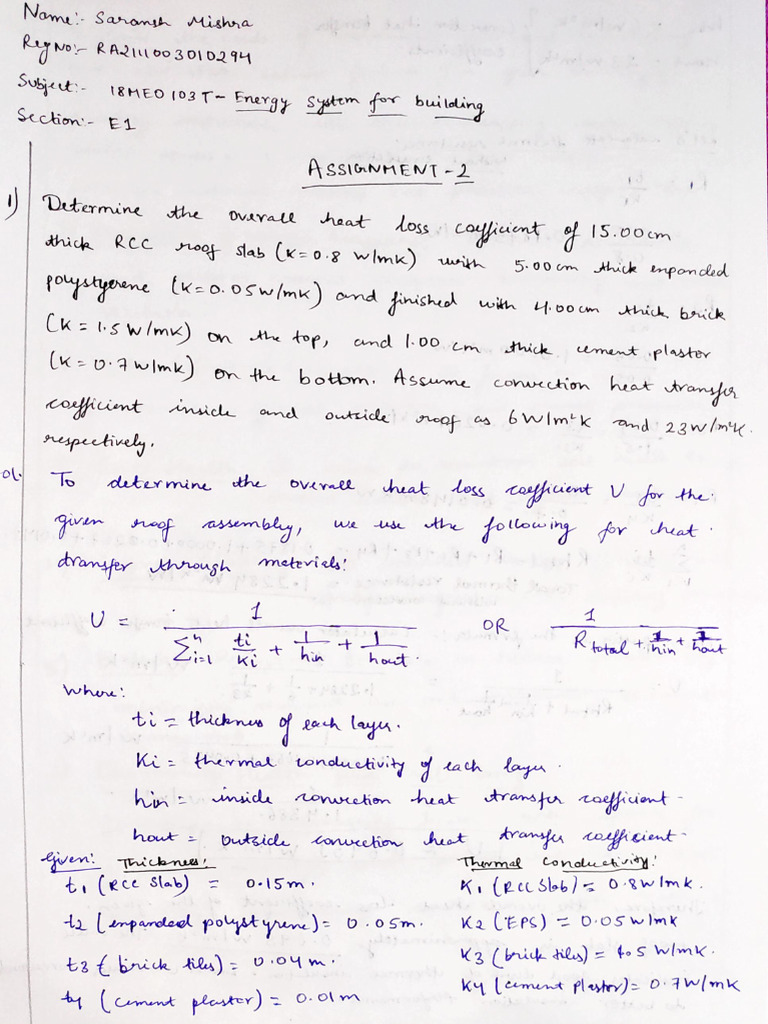 Name:- Saransh Mishra
Reg No:- RA2111003010294
Subject:- 18MEO103T - Energy System for building
Section:- E1
ASSIGNMENT - 2
1) Determine the overall heat loss coefficient of 15.00cm
thick RCC roof slab (K=0.8 W/mK) with 5.00cm thick expanded
polystyerene (K=0.05W/mK) and finished with 4.00cm thick brick
(K = 1.5 W/mK) on the top, and 1.00 cm thick cement plaster
(K=0.7 W/mK) on the bottom. Assume convection heat transfer
coefficient inside and outside roof as 6 W/m²K and 23 W/m²K.
respectively.
ol. To determine the overall heat loss coefficient U for the
given roof assembly, we use the following for heat
transfer through materials:
U = 1 / (∑ⁿi=1 ti/Ki + 1/hin + 1/hout) OR 1 / (Rtotal + 1/hin + 1/hout)
Where:
ti = thickness of each layer.
Ki = thermal conductivity of each layer.
hin = inside convection heat transfer coefficient-
hout = outside convection heat transfer coefficient-
Given: Thickness: Thermal Conductivity:
t1 (RCC Slab) = 0.15m. K1 (RCC Slab) = 0.8W/mK.
t2 (expanded polystyrene) = 0.05m. K2 (EPS) = 0.05W/mK
t3 (brick tiles) = 0.04m. K3 (brick tiles) = W/mK.
t4 (cement plaster) = 0.01m K4 (cement plaster) = 0.7W/mK